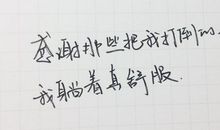 感谢那些把我打倒的、
我躺着真舒服.